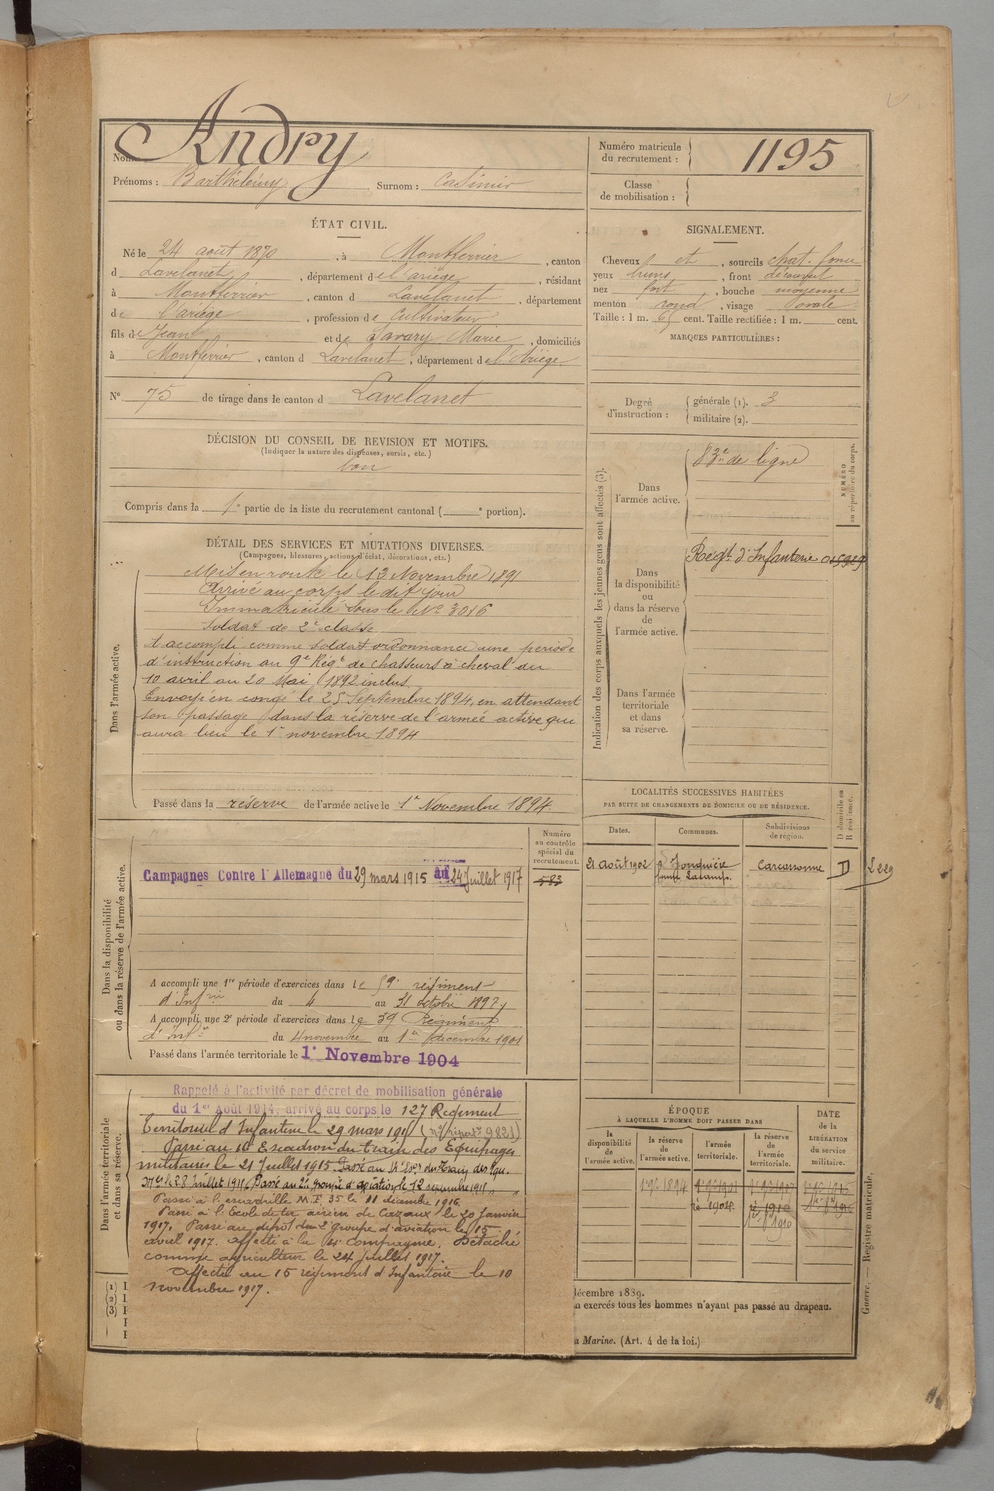 Andry
Nom
Prénoms : Barthélémy Surnom : Casimir
Numéro matricule
du recrutement : 1195
Classe
de mobilisation :
ÉTAT CIVIL.
Né le 24 août 1870, à Montferrier, canton
d Lavelanet, département de l'ariége, résidant
à Montferrier, canton d Lavelanet, département
de l'ariége, profession de Cultivateur
fils de Jean et de Savary Marie, domiciliés
à Montferrier, canton d Lavelanet, département de l'Ariége.
N° 75 de tirage dans le canton d Lavelanet
SIGNALEMENT.
Cheveux et, sourcils chat. foncé
yeux bruns, front découvert
nez fort, bouche moyenne
menton rond, visage ovale
Taille : 1 m. 65 cent. Taille rectifiée : 1 m. cent.
MARQUES PARTICULIÈRES :
Degré
d'instruction :
générale (1). 3
militaire (2).
DÉCISION DU CONSEIL DE REVISION ET MOTIFS.
(Indiquer la nature des dispenses, sursis, etc.)
bon
Compris dans la 1e partie de la liste du recrutement cantonal ( e portion).
DÉTAIL DES SERVICES ET MUTATIONS DIVERSES.
(Campagnes, blessures, actions d'éclat, décorations, etc.)
Dans l'armée active.
Mis en route le 13 Novembre 1891
Arrivé au corps le dit jour
Immatriculé sous le No 3016
Soldat de 2e classe
A accompli comme soldat ordonnance une période
d'instruction au 9e Régt de chasseurs à cheval du
10 avril au 20 Mai 1892 inclus
Envoyé en congé le 25 Septembre 1894, en attendant
son passage dans la réserve de l'armée active qui
aura lieu le 1er novembre 1894
Passé dans la réserve de l'armée active le 1er Novembre 1894.
Indication des corps auxquels les jeunes gens sont affectés (3).
Dans
l'armée active.
83e de ligne
NUMÉRO
au répertoire du corps.
Dans
la disponibilité
ou
dans la réserve
de
l'armée active.
Régt d'Infanterie
Dans l'armée
territoriale
et dans
sa réserve.
LOCALITÉS SUCCESSIVES HABITÉES
PAR SUITE DE CHANGEMENTS DE DOMICILE OU DE RÉSIDENCE.
Dates. Communes. Subdivisions
de région.
D domicile ou
R résidence.
21 Août 1902 Carcassonne D L 229
Dans la disponibilité
ou dans la réserve de l'armée active.
Numéro
au contrôle
spécial du
recrutement.
583
Campagnes Contre l'Allemagne du 29 mars 1915 au 24 Juillet 1917
A accompli une 1re période d'exercices dans le 59e régiment
d'Infrie du 4 au 31 octobre 1897
A accompli une 2e période d'exercices dans le 59 Régiment
d'Infie du 4 novembre au 1er décembre 1901
Passé dans l'armée territoriale le 1er Novembre 1904
Dans l'armée territoriale
et dans sa réserve.
Rappelé à l'activité par décret de mobilisation générale
du 1er Août 1914, arrivé au corps le 127 Régiment
Territorial d'Infanterie le 29 mars 1915
Passé au 16 Escadron du train des Équipages
militaires le 21 Juillet 1915 Passé au
Passé au 2e groupe d'aviation le
Passé à l'escadrille M.F. 35 le 11 décembre 1916.
Passé à l'École de tir aérien de Cazaux le 20 Janvier
1917. Passé au dépôt du 2 groupe d'aviation le 15
avril 1917. affecté à la Compagnie. Détaché
comme agriculteur le 24 Juillet 1917.
Affecté au 15 régiment d'Infanterie le 10
novembre 1917.
ÉPOQUE
À LAQUELLE L'HOMME DOIT PASSER DANS
la
disponibilité
de
l'armée active.
la réserve
de
l'armée active.
l'armée
territoriale.
la réserve
de
l'armée
territoriale.
DATE
de la
LIBÉRATION
du service
militaire.
1er 9bre 1894
1er 9bre 1904
1910
(1)
(2)
(3)
décembre 1889.
a exercés tous les hommes n'ayant pas passé au drapeau.
a Marine. (Art. 4 de la loi.)
Guerre. — Registre matricule.